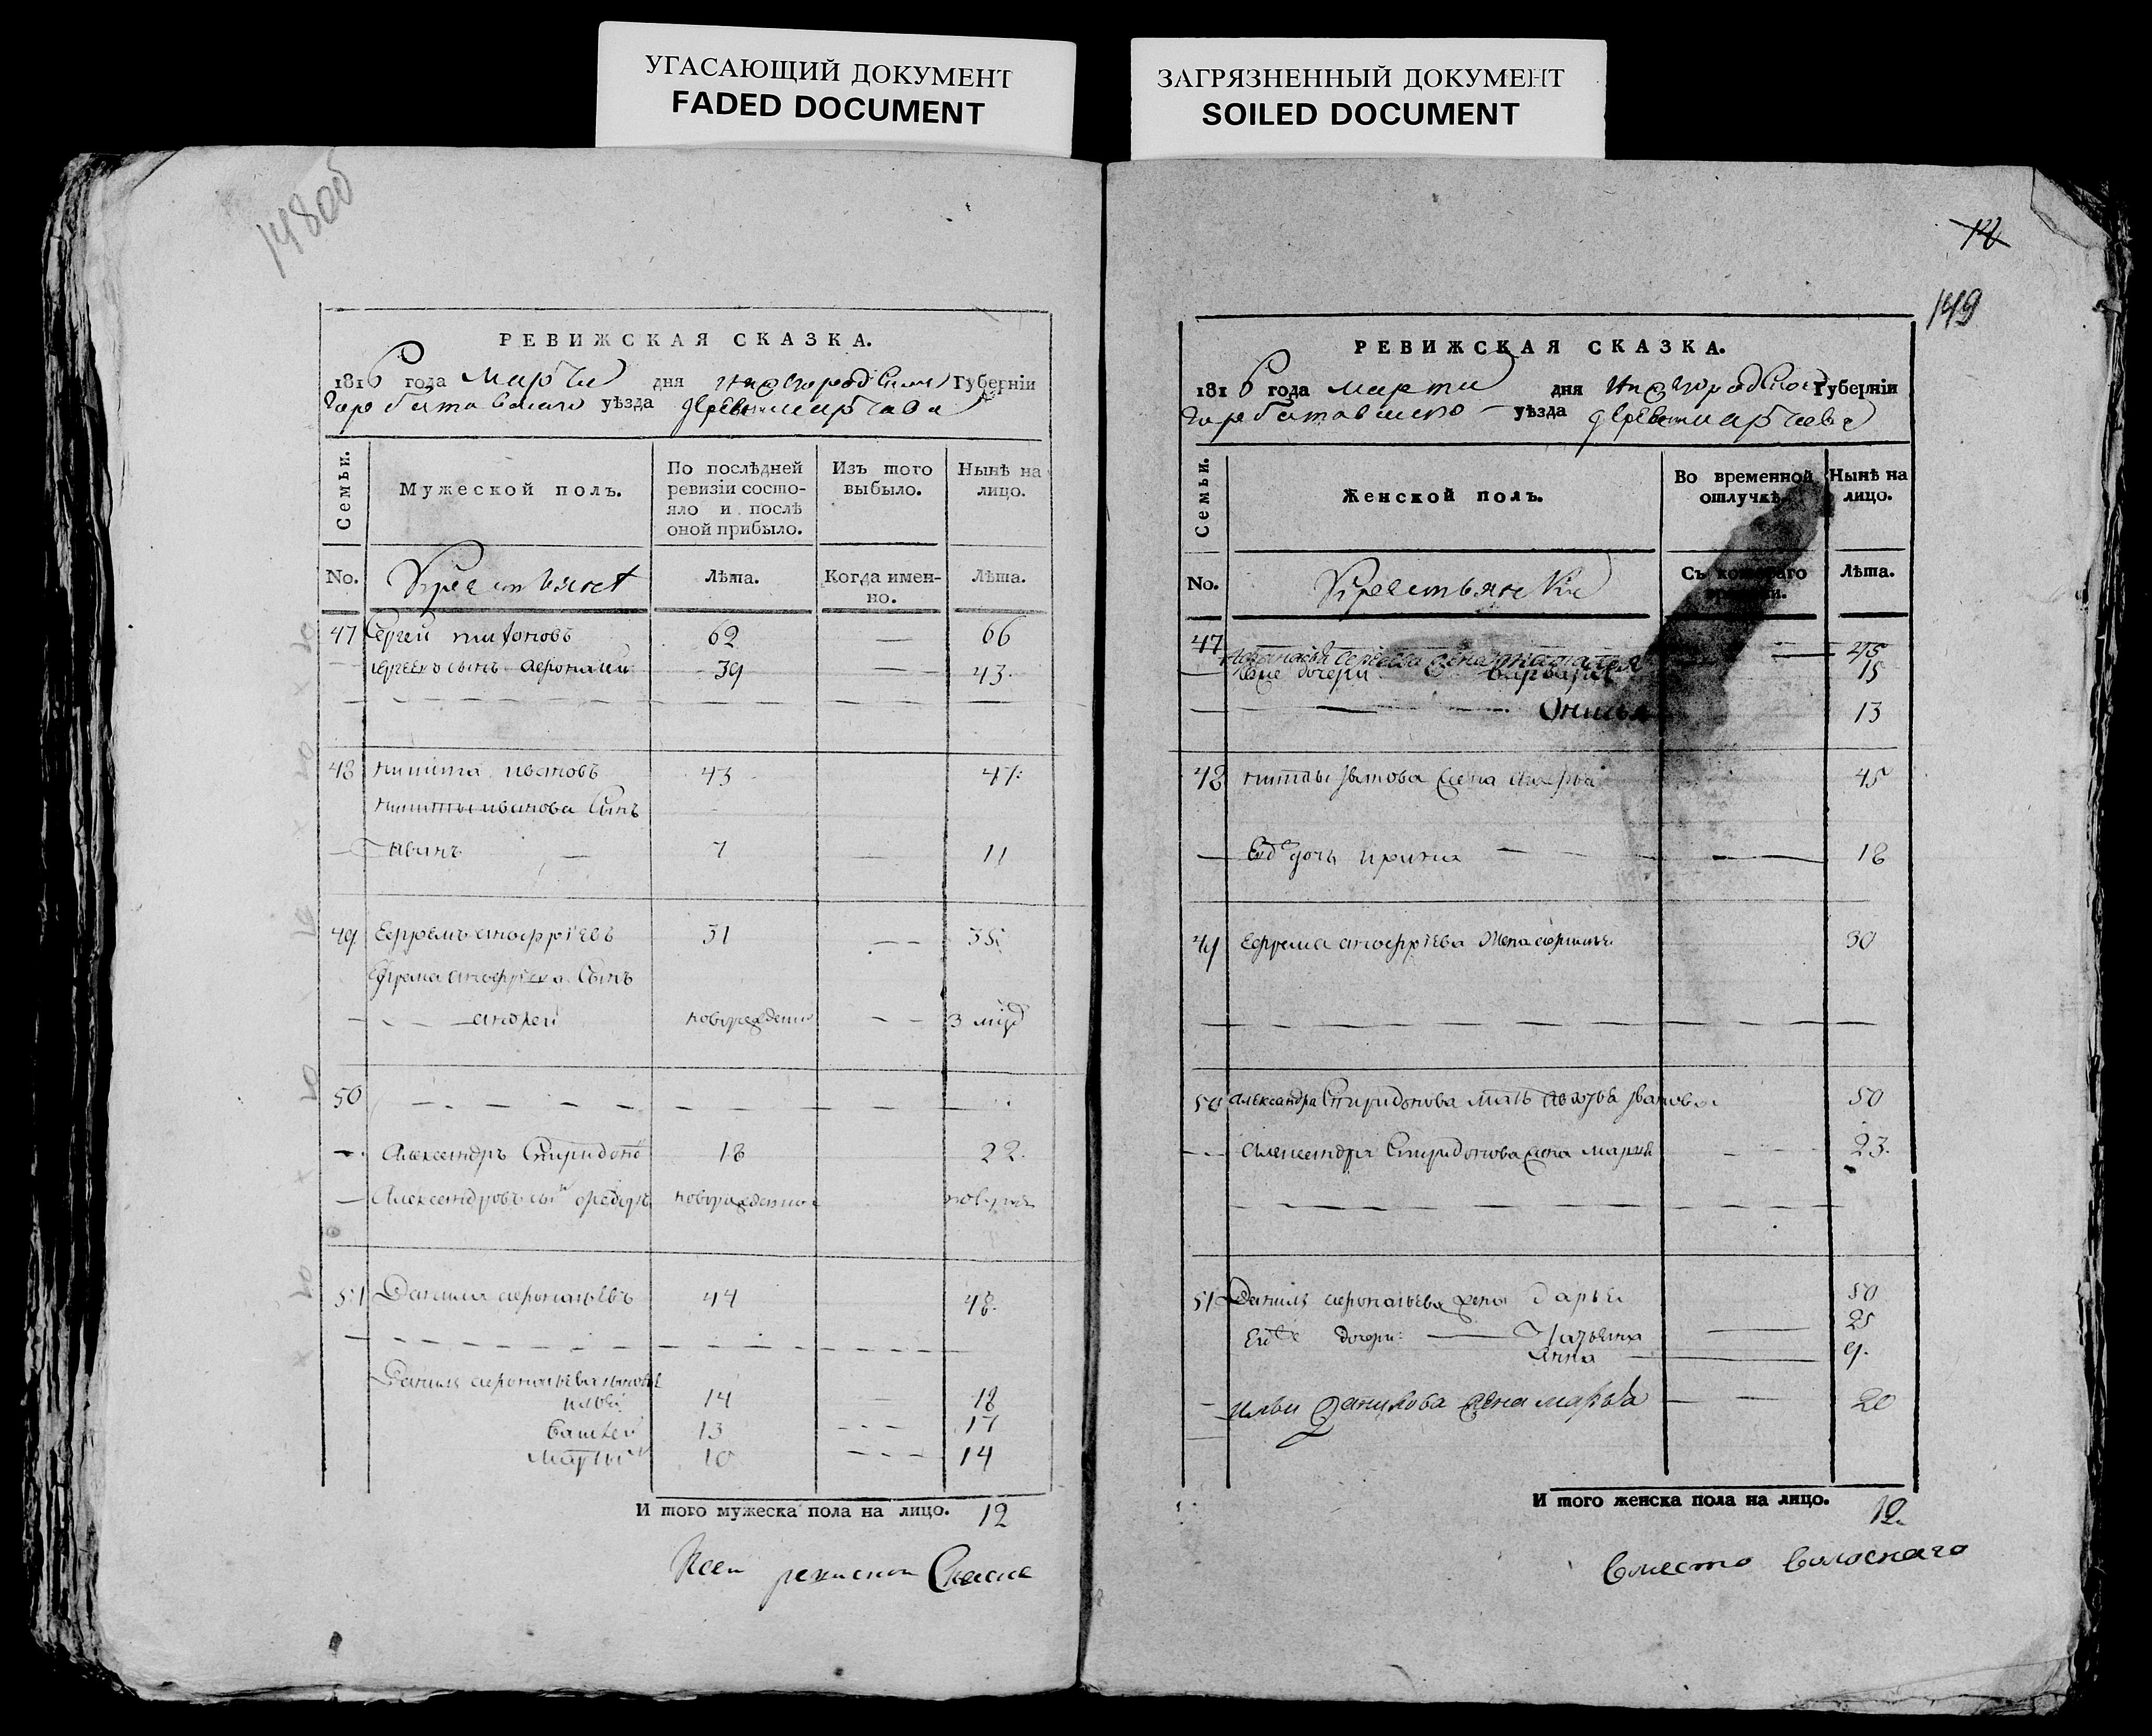 УГАСАЮЩИЙ ДОКУМЕНТ
FADED DOCUMENT
ЗАГРЯЗНЕННЫЙ ДОКУМЕНТ
SOILED DOCUMENT
148об
РЕВИЖСКАЯ СКАЗКА.
1816 года марта дня нижегородской Губерніи
горбатовскаго уѣзда деревни
Семьи.
Мужеской полъ.
По послѣдней ревизіи состояло и послѣ оной прибыло.
Изъ того выбыло.
Нынѣ на лицо.
No.
Крестьяне
Лѣта.
Когда именно.
Лѣта.
47 Сергей 62 — 66
Сергеевъ сынъ 39 — 43
48 никита ивановъ 43 47
никиты иванова сынъ
иванъ — 7 — 11
49 Ефремъ 31 — 35
Ефрема сынъ
андрей новорожденной — 3 мѣс
50
Александръ Спиридоно 18 22
Александровъ сынъ новорожденной новорож
51 Данила 44 48
Данилы сыновья
илья 14 — 18
Василей 13 — 17
Мартын 10 — 14
И того мужеска пола на лицо. 12
Ксей ревиской Скаске
14
149
РЕВИЖСКАЯ СКАЗКА.
1816 года марта дня нижегородской Губерніи
горбатовского уѣзда деревни
Семьи.
Женской полъ.
Во временной отлучкѣ.
Нынѣ на лицо.
No.
Крестьянки
Съ котораго времени.
Лѣта.
47 Сергеева жена — 45
дочери Варвара 15
13
48 никиты иванова жена 45
Ево дочь ирина — 18
49 Ефрема жена 30
50 Александра Спиридонова мать иванова 50
Александра Спиридонова жена марья 23
51 Данилы жена дарья 50
Ево дочери — Татьяна — 25
Анна — 9
Ильи Данилова жена марья — 20
И того женска пола на лицо. 12
вместо волоснаго